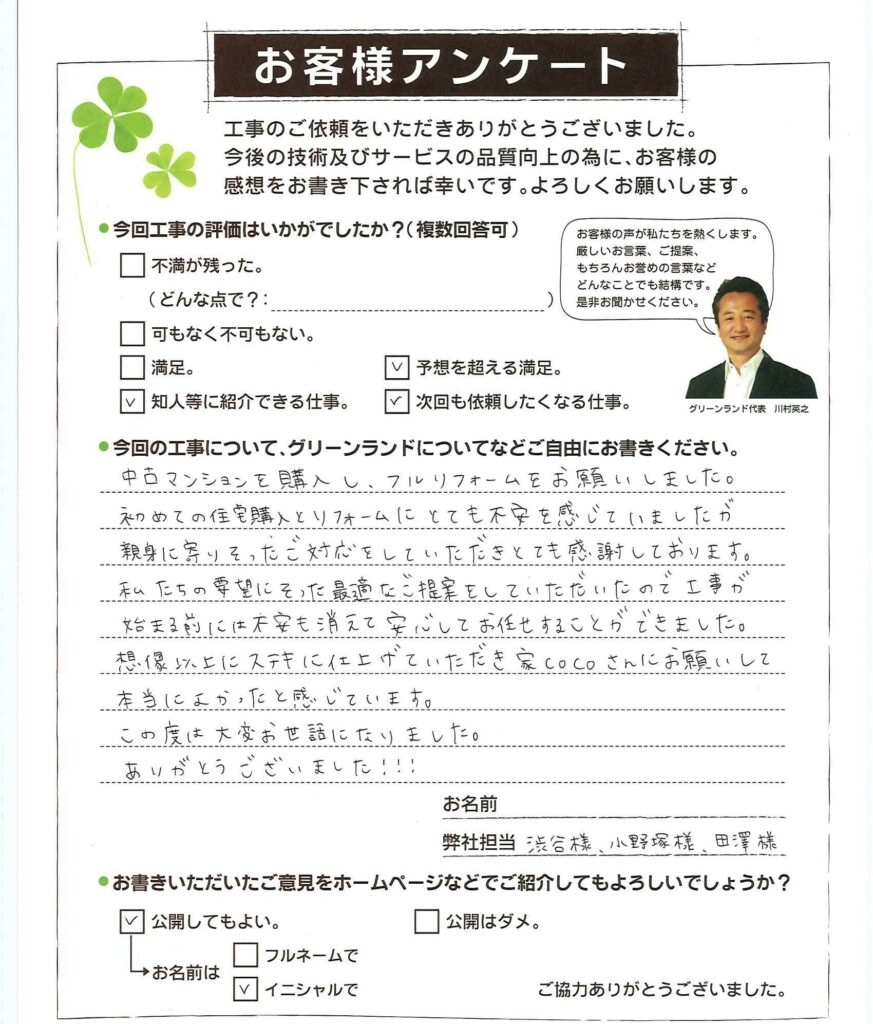 お客様アンケート
工事のご依頼をいただきありがとうございました。
今後の技術及びサービスの品質向上の為に、お客様の
感想をお書き下されば幸いです。よろしくお願いします。
今回工事の評価はいかがでしたか？（複数回答可）
不満が残った。
（どんな点で？：　　　）
可もなく不可もない。
満足。
予想を超える満足。
知人等に紹介できる仕事。
次回も依頼したくなる仕事。
お客様の声が私たちを熱くします。
厳しいお言葉、ご提案、
もちろんお誉めの言葉など
どんなことでも結構です。
是非お聞かせください。
グリーンランド代表　川村英之
今回の工事について、グリーンランドについてなどご自由にお書きください。
中古マンションを購入し、フルリフォームをお願いしました。
初めての住宅購入とリフォームにとても不安を感じていましたが
親身に寄りそったご対応をしていただきとても感謝しております。
私たちの要望にそった最適なご提案をしていただいたので工事が
始まる前には不安も消えて安心してお任せすることができました。
想像以上にステキに仕上げていただき家cocoさんにお願いして
本当によかったと感じています。
この度は大変お世話になりました。
ありがとうございました!!!
お名前
弊社担当 渋谷様、小野塚様、田澤様
お書きいただいたご意見をホームページなどでご紹介してもよろしいでしょうか？
公開してもよい。
公開はダメ。
お名前は
フルネームで
イニシャルで
ご協力ありがとうございました。